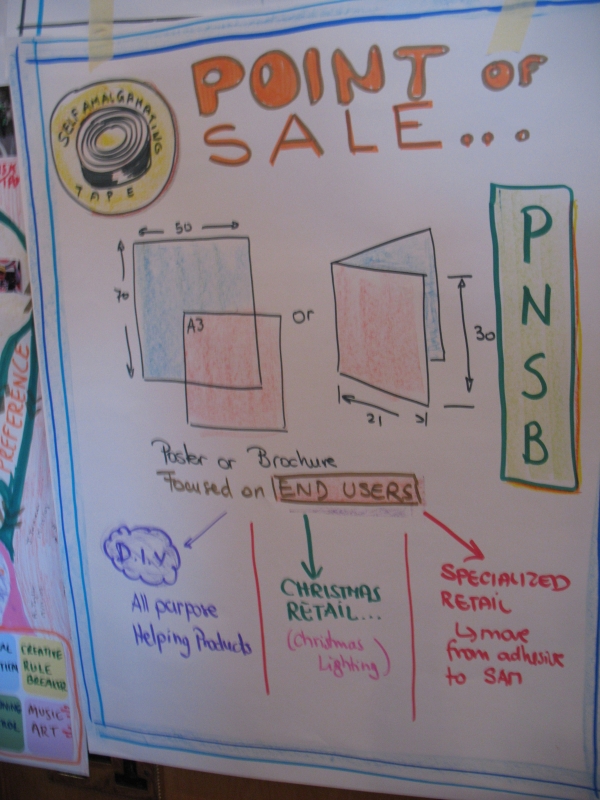 SELF AMALGAMATING
TAPE
POINT OF
SALE...
50
70
A3
or
30
21
P
N
S
B
Poster or Brochure
Focused on END USERS
D.I.Y
All parpose
Helping Products
CHRISTMAS
RETAIL...
(Christmas
Lighting)
SPECIALIZED
RETAIL
↳ move
from adhesive
to SAM
PREFERENCE
CREATIVE
RULE
BREAKER
MUSIC
ART